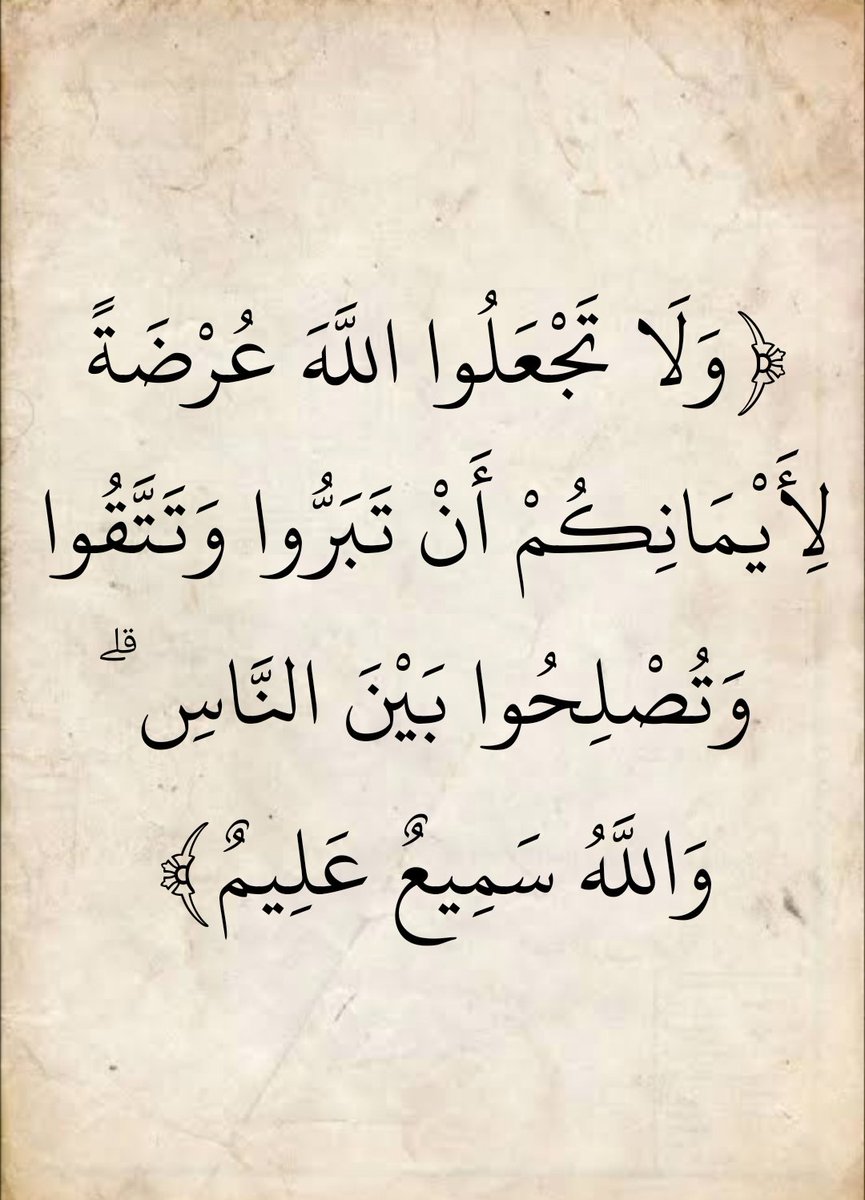 ﴿وَلَا تَجْعَلُوا اللَّهَ عُرْضَةً
لِأَيْمَانِكُمْ أَنْ تَبَرُّوا وَتَتَّقُوا
وَتُصْلِحُوا بَيْنَ النَّاسِ ۗ
وَاللَّهُ سَمِيعٌ عَلِيمٌ﴾